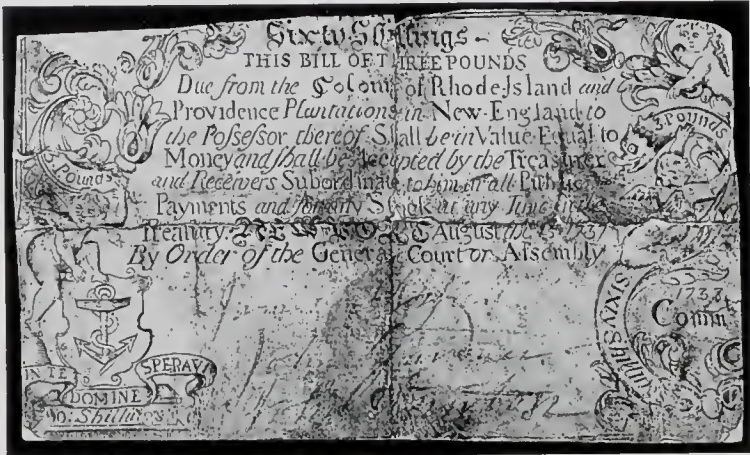 Sixty Shillings
THIS BILL OF THREE POUNDS
Due from the Colony of Rhode-Island and
Providence Plantations in New-England to
the Possessor thereof Shall be in Value Equal to
Money and shall be Accepted by the Treasurer
and Receivers Subordinate to him in all Public
Payments and for any Stock at any Time in the
Treasury NEWPORT August 1737
By Order of the General Court or Assembly
3 Pounds
3 Pounds
1738
Comtt
IN TE
DOMINE
SPERAV
Shillings